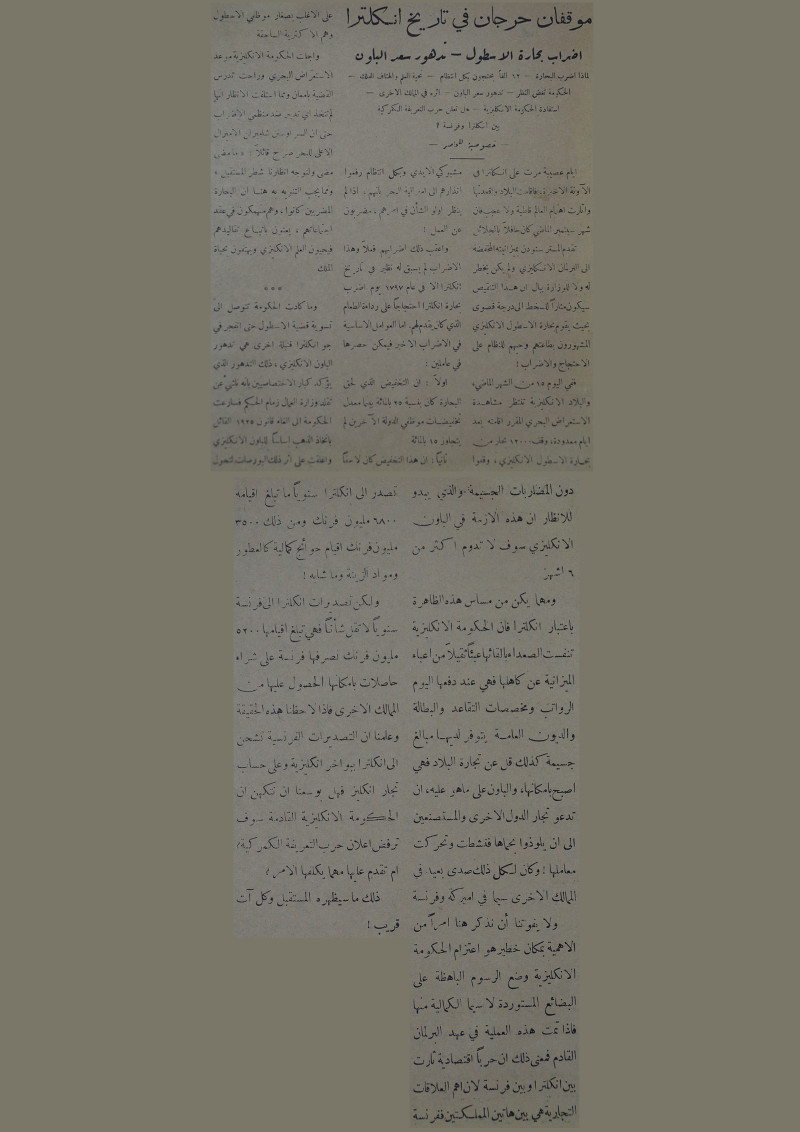 موقفان حرجان في تاريخ انكلترا
اضراب بحارة الاسطول — تدهور سعر الباون
لماذا اضرب البحارة — ١٢ الفاً يحتجون بكل انتظام — تحية العلم والهتاف للملك —
الحكومة تغض النظر — تدهور سعر الباون — اثره في الممالك الاخرى —
استفادة الحكومة الانكليزية — هل تعلن حرب التعريفة الكمركية
بين انكلترا وفرنسة ؟
— خصوصية —
ايام عصيبة مرت على انكلترا في
الآونة الاخيرة فاقلقت البلاد واقعدتها
واثارت اهتمام العالم قاطبة ولا عجب فان
شهر سبتمبر الماضي كان حافلاً بالجلائل
تقدم المستر سنودن بميزانيته المخفضة
الى البرلمان الانكليزي ولم يكن يخطر
له ولا للوزارة ببال ان هذا التنقيص
سيكون مثاراً للسخط الى درجة قصوى
بحيث يقوم بحارة الاسطول الانكليزي
المشهورون بطاعتهم وحبهم للنظام على
الاحتجاج والاضراب :
ففي اليوم ١٥ من الشهر الماضي،
والبلاد الانكليزية تنتظر مشاهدة
الاستعراض البحري المقرر اقامته بعد
ايام معدودة، وقف ١٢٠٠٠ بحار من
بحارة الاسطول الانكليزي ، وقفوا
مشبوكي الايدي وبكل انتظام رفعوا
انذارهم الى اميرالية البحر بانهم ، اذا لم
ينظر اولو الشأن في امرهم ، مضربون
عن العمل :
واعقب ذلك اضرابهم فعلاً وهذا
الاضراب لم يسبق له نظير في تاريخ
انكلترا الا في عام ١٧٩٧ يوم اضرب
بحارة انكلترا احتجاجاً على رداءة الطعام
الذي كان يقدم لهم. اما العوامل الاساسية
في الاضراب الاخير فيمكن حصرها
في عاملين :
اولاً : ان التخفيض الذي لحق
البحارة كان بنسبة ٢٥ بالمائة بينما معدل
تخفيضات موظفي الدولة الآخرين لم
يتجاوز ١٥ بالمائة
ثانياً : ان هذا التخفيض كان لاحقاً
على الاغلب بصغار موظفي الاسطول
وهم الاكثرية الساحقة
واجلت الحكومة الانكليزية موعد
الاستعراض البحري وراحت تدرس
القضية بامعان ومما استلفت الانظار انها
لم تتخذ اي تدبير ضد منظمي الاضراب
حتى ان السر اوستن شامبرلن الاميرال
الاعلى للبحر صرح قائلاً : « ما مضى
مضى ولنوجه انظارنا شطر المستقبل »
ومما يجب التنويه به هنا ان البحارة
المضربين كانوا ، وهم منهمكون في عقد
اجتماعاتهم ، يعنون باتباع تقاليدهم
فيحيون العلم الانكليزي ويهتفون بحياة
الملك
***
وما كادت الحكومة تتوصل الى
تسوية قضية الاسطول حتى انفجر في
جو انكلترا قنبلة اخرى هي تدهور
الباون الانكليزي ، ذلك التدهور الذي
يؤكد كبار الاختصاصيين بانه ناشيء عن
تقلد وزارة العمال زمام الحكم فسارعت
الحكومة الى الغاء قانون ١٩٢٥ القائل
باتخاذ الذهب اساساً للباون الانكليزي
واغلقت على اثر ذلك البورصات لتحول
دون المضاربات الجسيمة والذي يبدو
للانظار ان هذه الازمة في الباون
الانكليزي سوف لا تدوم اكثر من
٦ اشهر
ومهما يكن من مساس هذه الظاهرة
باعتبار انكلترا فان الحكومة الانكليزية
تنفست الصعداء بالقائها عبئاً ثقيلاً من اعباء
الميزانية عن كاهلها فهي عند دفعها اليوم
الرواتب ومخصصات التقاعد والبطالة
والديون العامة يتوفر لديها مبالغ
جسيمة كذلك قل عن تجارة البلاد فهي
اصبح بامكانها، والباون على ماهو عليه، ان
تدعو تجار الدول الاخرى والمستصنعين
الى ان يلوذوا بحماها فنشطت وتحركت
معاملها ! وكان لكل ذلك صدى بعيد في
الممالك الاخرى سيما في اميركة وفرنسة
ولا يفوتنا أن نذكر هنا امراً من
الاهمية بمكان خطير هو اعتزام الحكومة
الانكليزية وضع الرسوم الباهظة على
البضائع المستوردة لا سيما الكمالية منها
فاذا تمت هذه العملية في عهد البرلمان
القادم فمعنى ذلك ان حرباً اقتصادية ثارت
بين انكلترا وبين فرنسة لان اهم العلاقات
التجارية هي بين هاتين المملكتين ففرنسة
تصدر الى انكلترا سنوياً ما تبلغ اقيامه
٦٨٠٠ مليون فرنك ومن ذلك ٣٥٠٠
مليون فرنك اقيام حوائج كمالية كالعطور
ومواد الزينة وما شابه !
ولكن تصديرات انكلترا الى فرنسة
سنوياً لا تقل شأناً فهي تبلغ اقيامها ٥٢٠٠
مليون فرنك تصرفها فرنسة على شراء
حاصلات بامكانها الحصول عليها من
الممالك الاخرى فاذا لاحظنا هذه الحقيقة
وعلمنا ان التصديرات الفرنسية تشحن
الى انكلترا ببواخر انكليزية وعلى حساب
تجار انكليز فهل بوسعنا ان نتكهن ان
الحكومة الانكليزية القادمة سوف
ترفض اعلان حرب التعريفة الكمركية ؟
ام تقدم عليها مهما يكلفها الامر ؟
ذلك ما سيظهره المستقبل وكل آت
قريب !